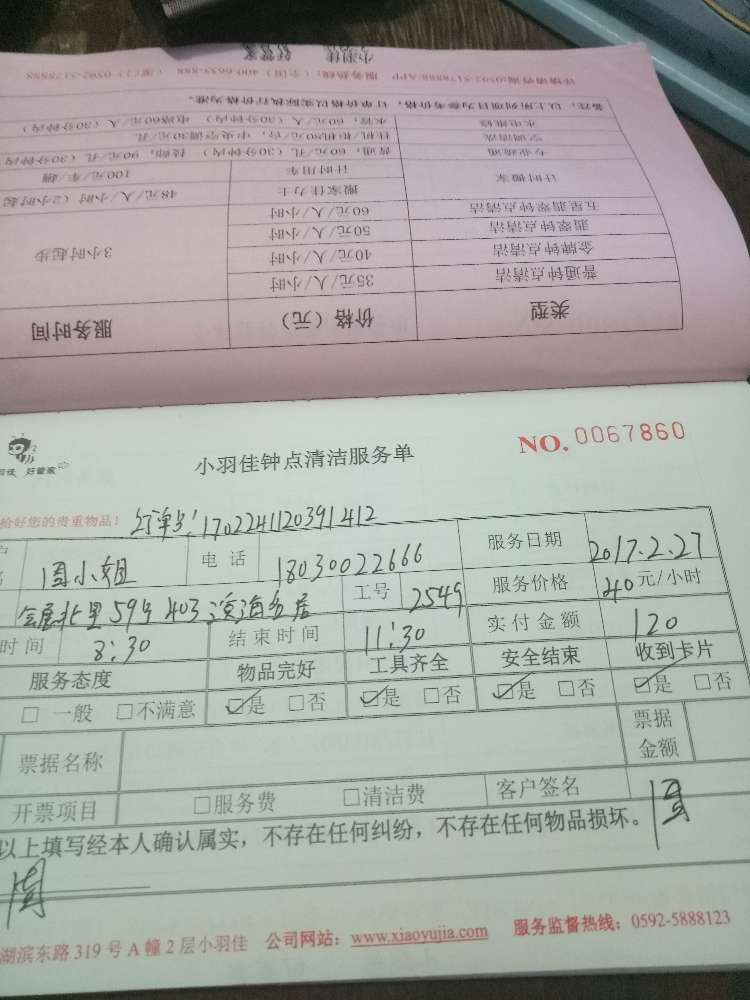 小羽佳 好管家
详情请咨询:0592-5178888/APP 服务热线：（全国）400-6633-888 （厦门）0592-5178888
备注：以上所列项目为参考价，订单价格以实际执行价格为准。
水电维修 水管，60元/人（30分钟内） 电路60元/人（30分钟内）
空调清洗 挂机/柜机80元/台，中央空调30元/孔
专业疏通 普通，60元/孔（30分钟内） 技师，90元/孔（30分钟内）
计时搬家 计时用车 100元/车/辆
搬家佳力士 48元/人/小时（2小时起
五星翡翠钟点清洁 60元/人/小时
翡翠钟点清洁 50元/人/小时 3小时起步
金牌钟点清洁 40元/人/小时
普通钟点清洁 35元/人/小时
类型 价格（元） 服务时间
好管家
小羽佳钟点清洁服务单 NO.0067860
给好您的贵重物品！ 订单号：170224120391412
周小姐 电话 18030022666 服务日期 2017.2.27
会展北里59号403 滨海名居 工号 2549 服务价格 40元/小时
时间 8:30 结束时间 11:30 实付金额 120
服务态度 物品完好 工具齐全 安全结束 收到卡片
□ 一般 □不满意 ☑是 □否 ☑是 □否 ☑是 □否 ☑是 □否
票据名称 票据金额
开票项目 □服务费 □清洁费 客户签名 周
以上填写经本人确认属实，不存在任何纠纷，不存在任何物品损坏。
周
湖滨东路319号A幢2层小羽佳 公司网站：www.xiaoyujia.com 服务监督热线：0592-5888123